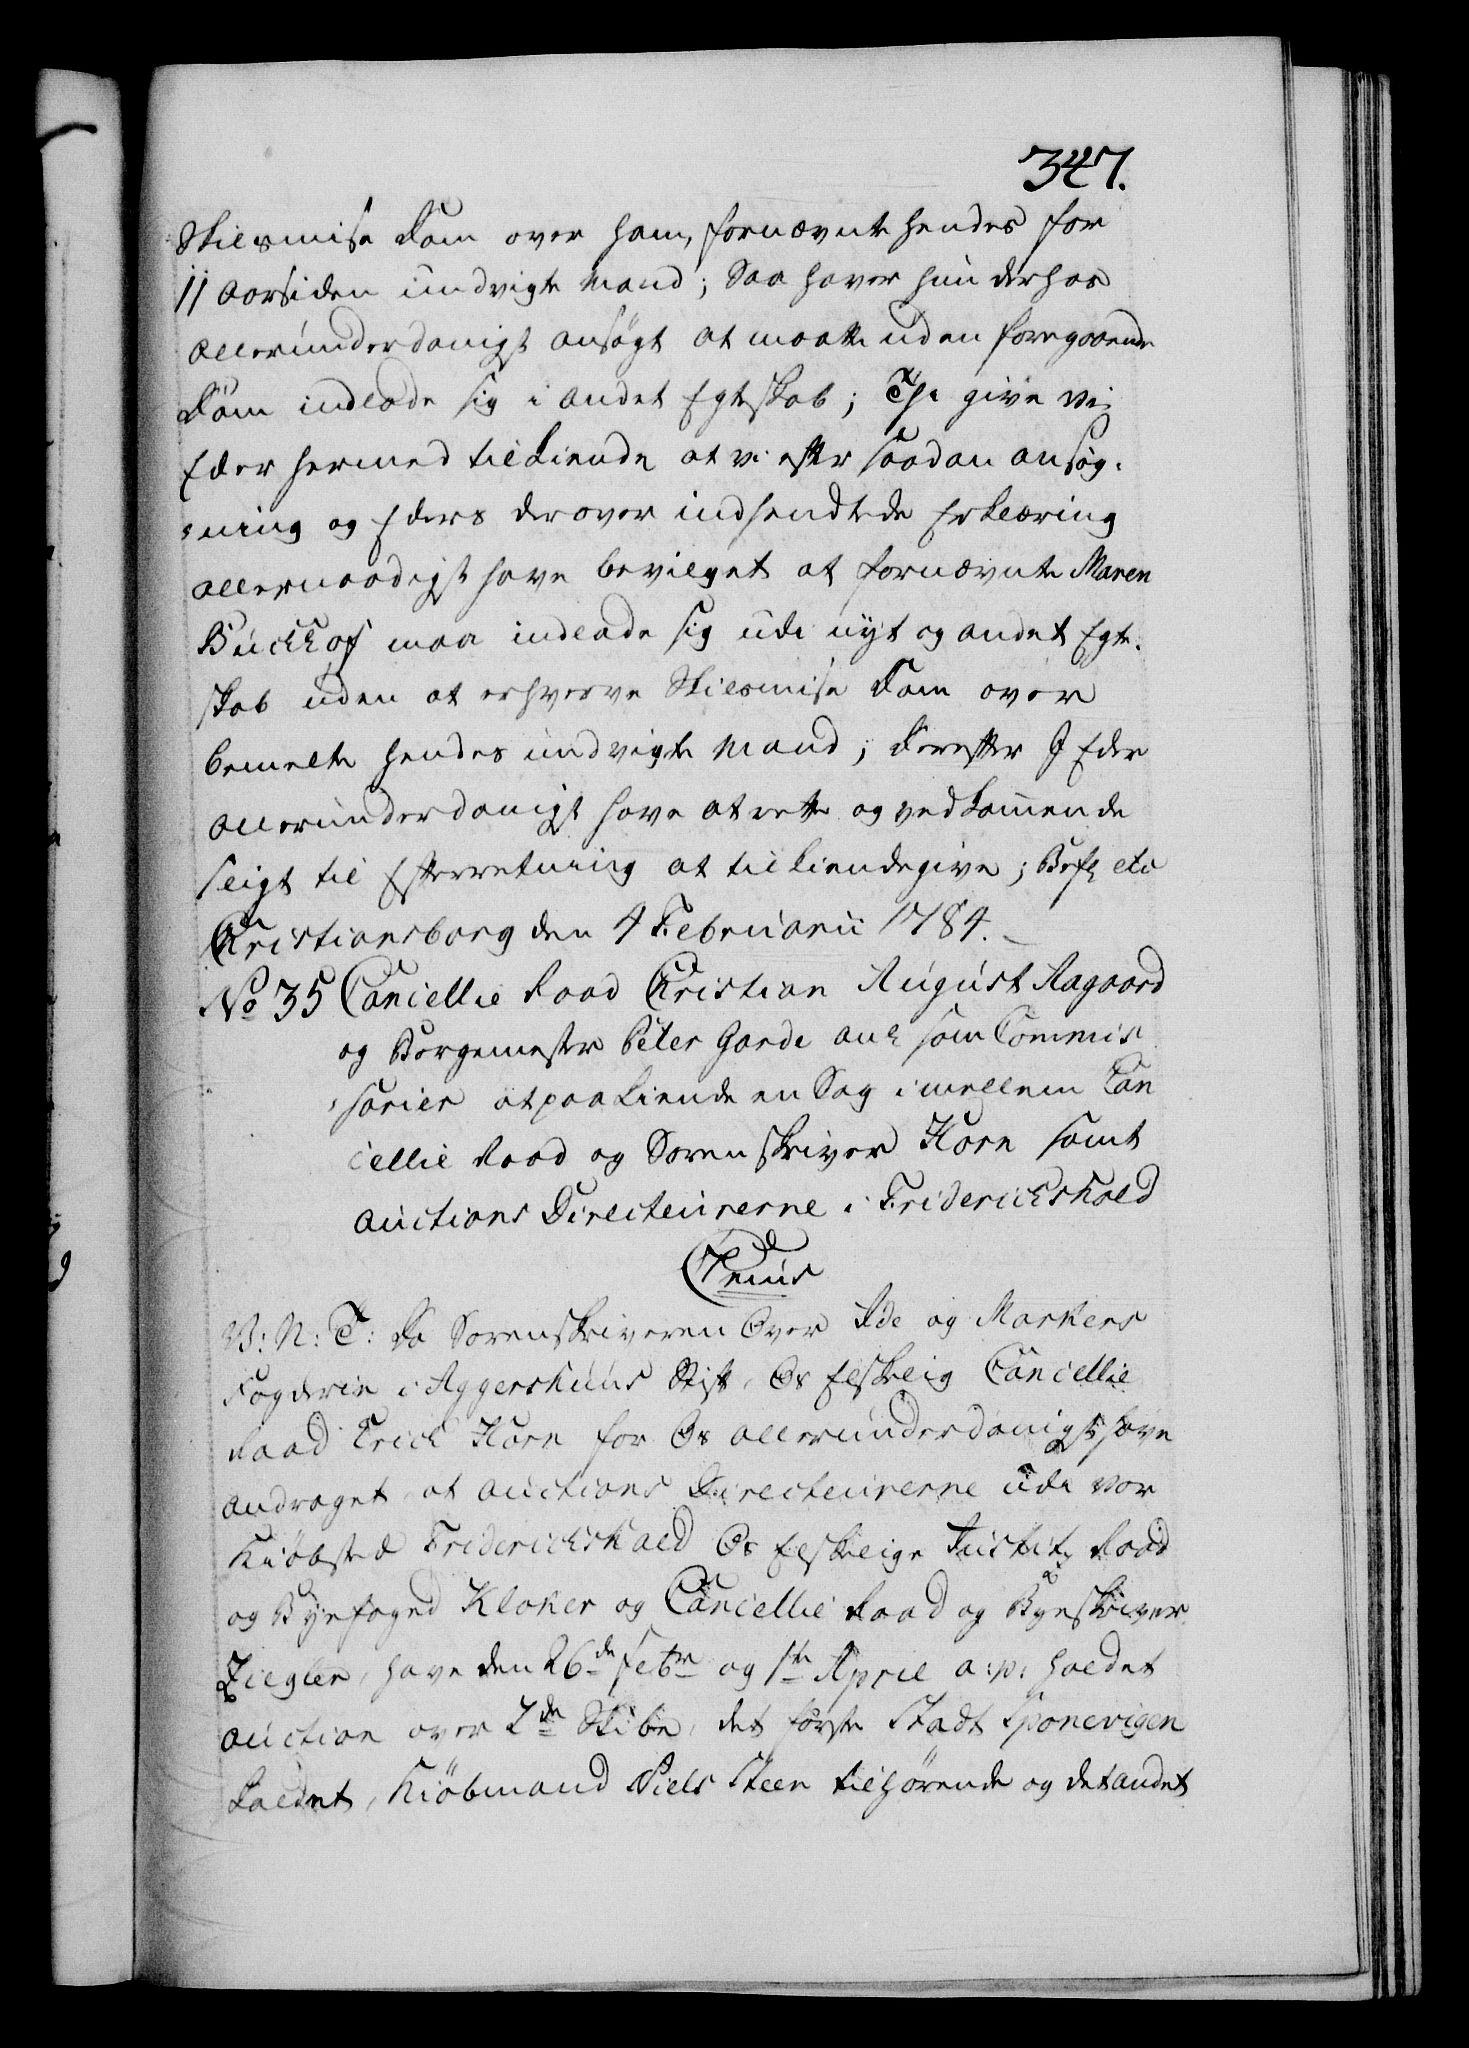 347.
Skilsmise Dom over ham, fornævnte hendes for
11 Aar siden undvigte Mand; Saa haver hun derhos
allerunderdanigst ansögt at maatte uden foregaaende
Dom indlade sig i andet Egteskab; Thi give vi
Eder hermed tilkiende at vi efter saadan ansög-
ning og Eders derover indsendte Erklæring
allernaadigst have bevilget at fornævnte Maren
Buckhof maa indlade sig udi nyt og andet Egte-
skab uden at erhverve Skilsmise Dom over
bemelte hendes undvigte Mand; Derefter I Eder
allerunderdanigst have at rette og vedkommende
sligt til Efterretning at tilkiendegive; Befl etc
Christiansborg den 4 Februarii 1784.
No 35 Cancellie Raad Christian August Aagaard
og Borgemester Peter Garde anl som Commis
sarier at paakiende en Sag imellem Can
cellie Raad og Sorenskriver Horn samt
Auctions Directeurerne i Friderichshald
V: N: T: Da Sorenskriveren over Ide og Markers
Fogderie i Aggershuus Stift, Os Elskelig Cancellie
Raad Erich Horn for Os allerunderdanigst have
andraget at Auctions Directeurerne udi vor
Kiöbsted Friderichshald Os Elskelige Justitz Raad
og Byefoged Kloker og Cancellie Raad og Byeskriver
Ziegler, have den 26de Febr og 1te April a: p: holdet
Auction over 2de Skibe, det förste Stadt Sponevigen
kaldet, Kiöbmand Niels Steen tilhörende og det andet